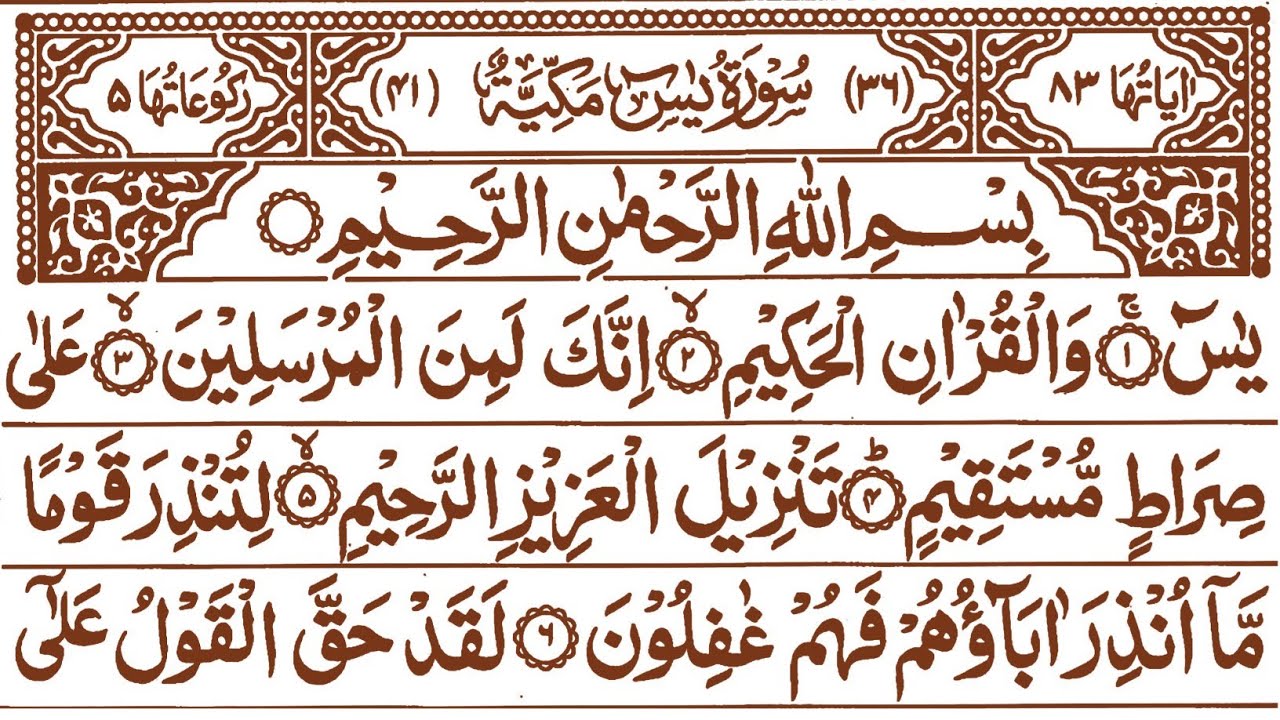 اٰيَاتُهَا ٨٣ (٣٦) سُوْرَةُ يٰسٓ مَكِّيَّةٌ (٤١) رُكُوْعَاتُهَا ٥
بِسْمِ اللّٰهِ الرَّحْمٰنِ الرَّحِيْمِ ۝
يٰسٓ ۚ﴿١﴾ وَالْقُرْاٰنِ الْحَكِيْمِ ۙ﴿٢﴾ اِنَّكَ لَمِنَ الْمُرْسَلِيْنَ ۙ﴿٣﴾ عَلٰى
صِرَاطٍ مُّسْتَقِيْمٍ ؕ﴿۴﴾ تَنْزِيْلَ الْعَزِيْزِ الرَّحِيْمِ ۙ﴿۵﴾ لِتُنْذِرَ قَوْمًا
مَّاۤ اُنْذِرَ اٰبَآؤُهُمْ فَهُمْ غٰفِلُوْنَ ﴿۶﴾ لَقَدْ حَقَّ الْقَوْلُ عَلٰۤى